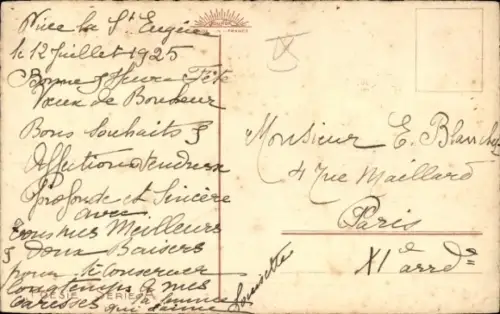 Vive la St Eugène
le 12 Juillet 1925
Bonne & Heureuse Fête
Vœux de Bonheur
Bons Souhaits &
Affection Tendresse
Profonde et Sincère
avec
tous mes Meilleurs
& doux Baisers
pour te conserver
longtemps à mes
caresses
qui t'aime
Louisette
FRANCE
Monsieur E. Blanchy
4 Rue Maillard
Paris
XIe arrdt